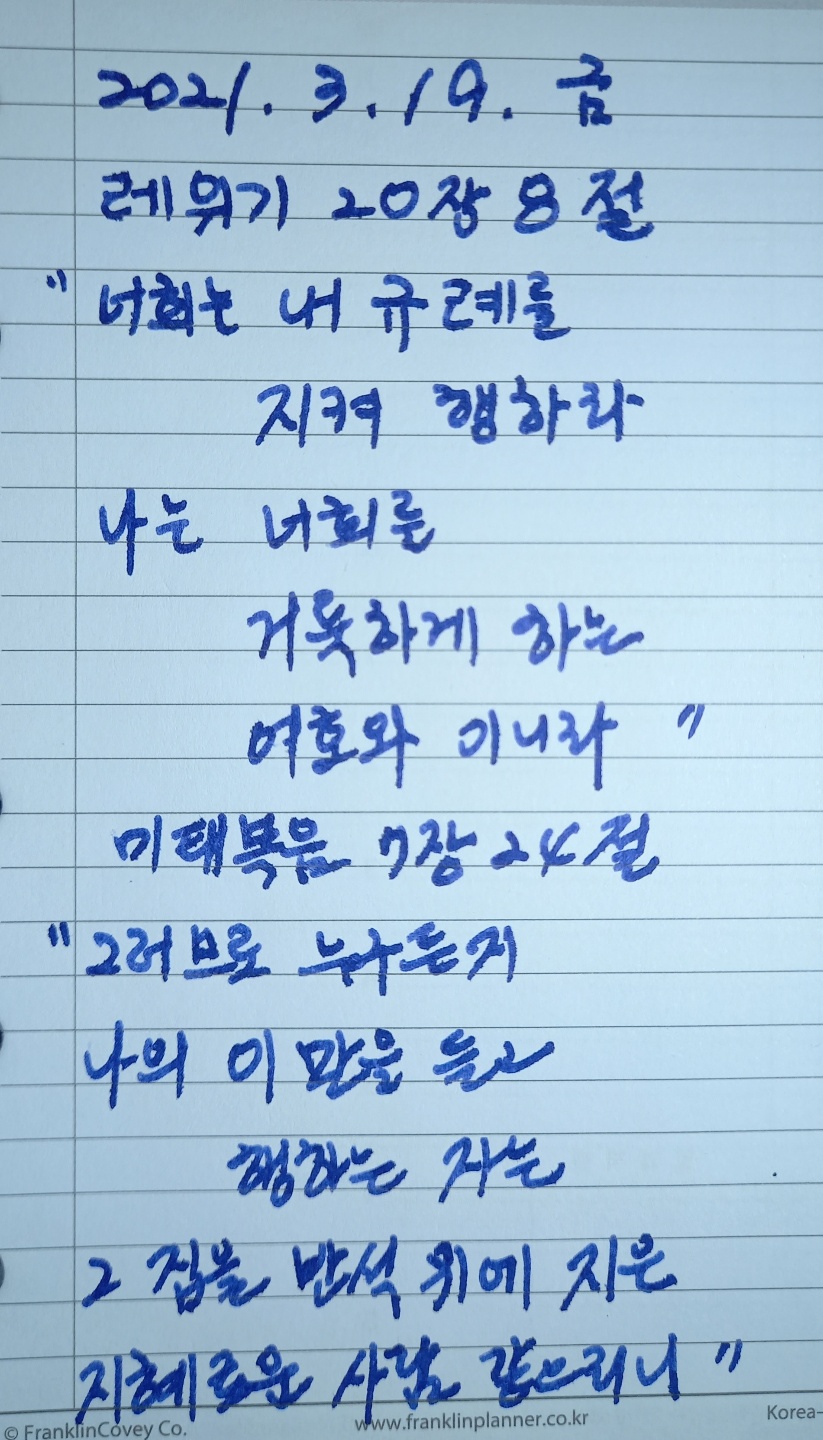 2021. 3. 19. 금
레위기 20장 8절
" 너희는 내 규례를
지켜 행하라
나는 너희를
거룩하게 하는
여호와 이니라 "
마태복음 7장 24절
" 그러므로 누구든지
나의 이 말을 듣고
행하는 자는
그 집을 반석 위에 지은
지혜로운 사람 같으리니 "
© FranklinCovey Co. www.franklinplanner.co.kr Korea-